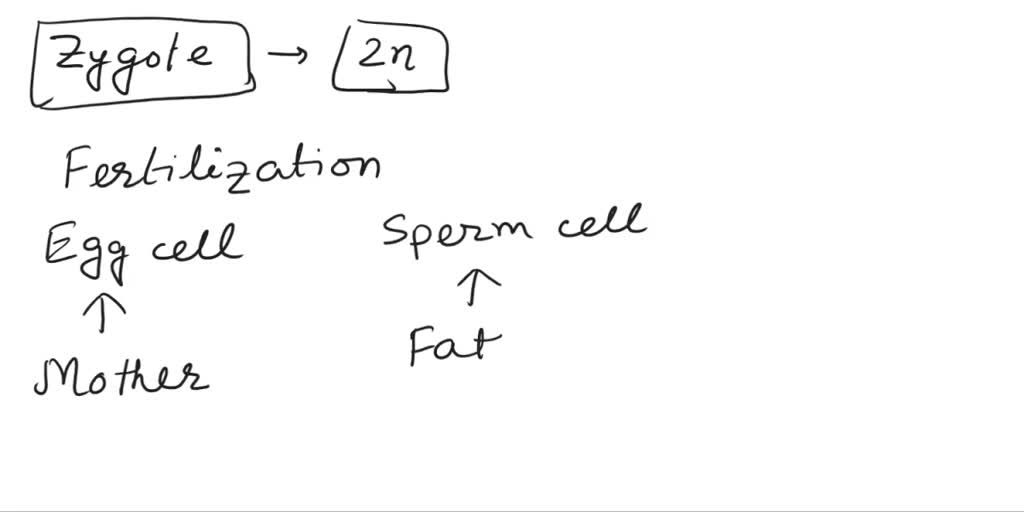 Zygote → 2n
Fertilization
Egg cell Sperm cell
↑ ↑
Mother Fat